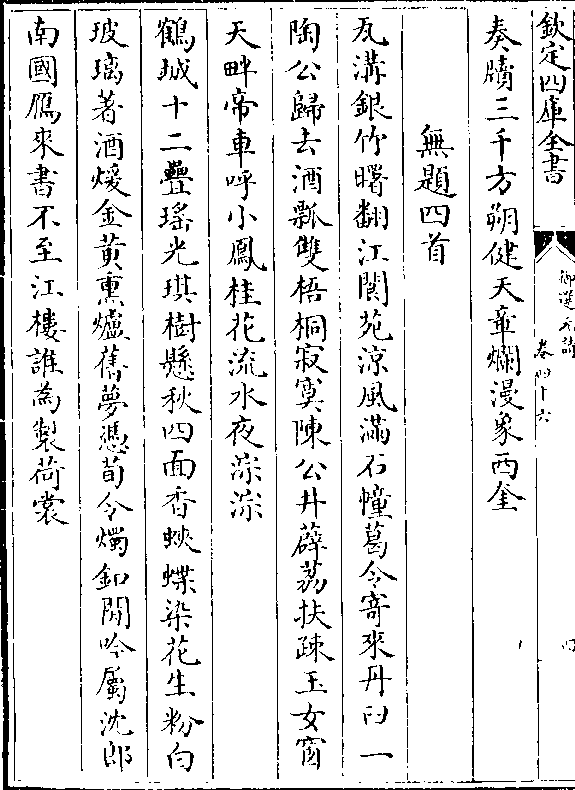 欽定四庫全書
御選元詩
卷四十六
奏牘三千方朔健天章爛漫象西奎
無題四首
瓦溝銀竹曙翻江閬苑涼風滿石幢葛令寄來丹臼一
陶公歸去酒瓢雙梧桐寂寞陳公井薜荔扶疎玉女窗
天畔帝車呼小鳳桂花流水夜淙淙
鶴城十二疊瑤光琪樹懸秋四面香蛺蝶染花生粉白
玻璃著酒煖金黄熏爐舊夢憑荀令燭釦閒吟屬沈郎
南國鴈來書不至江樓誰為製荷裳